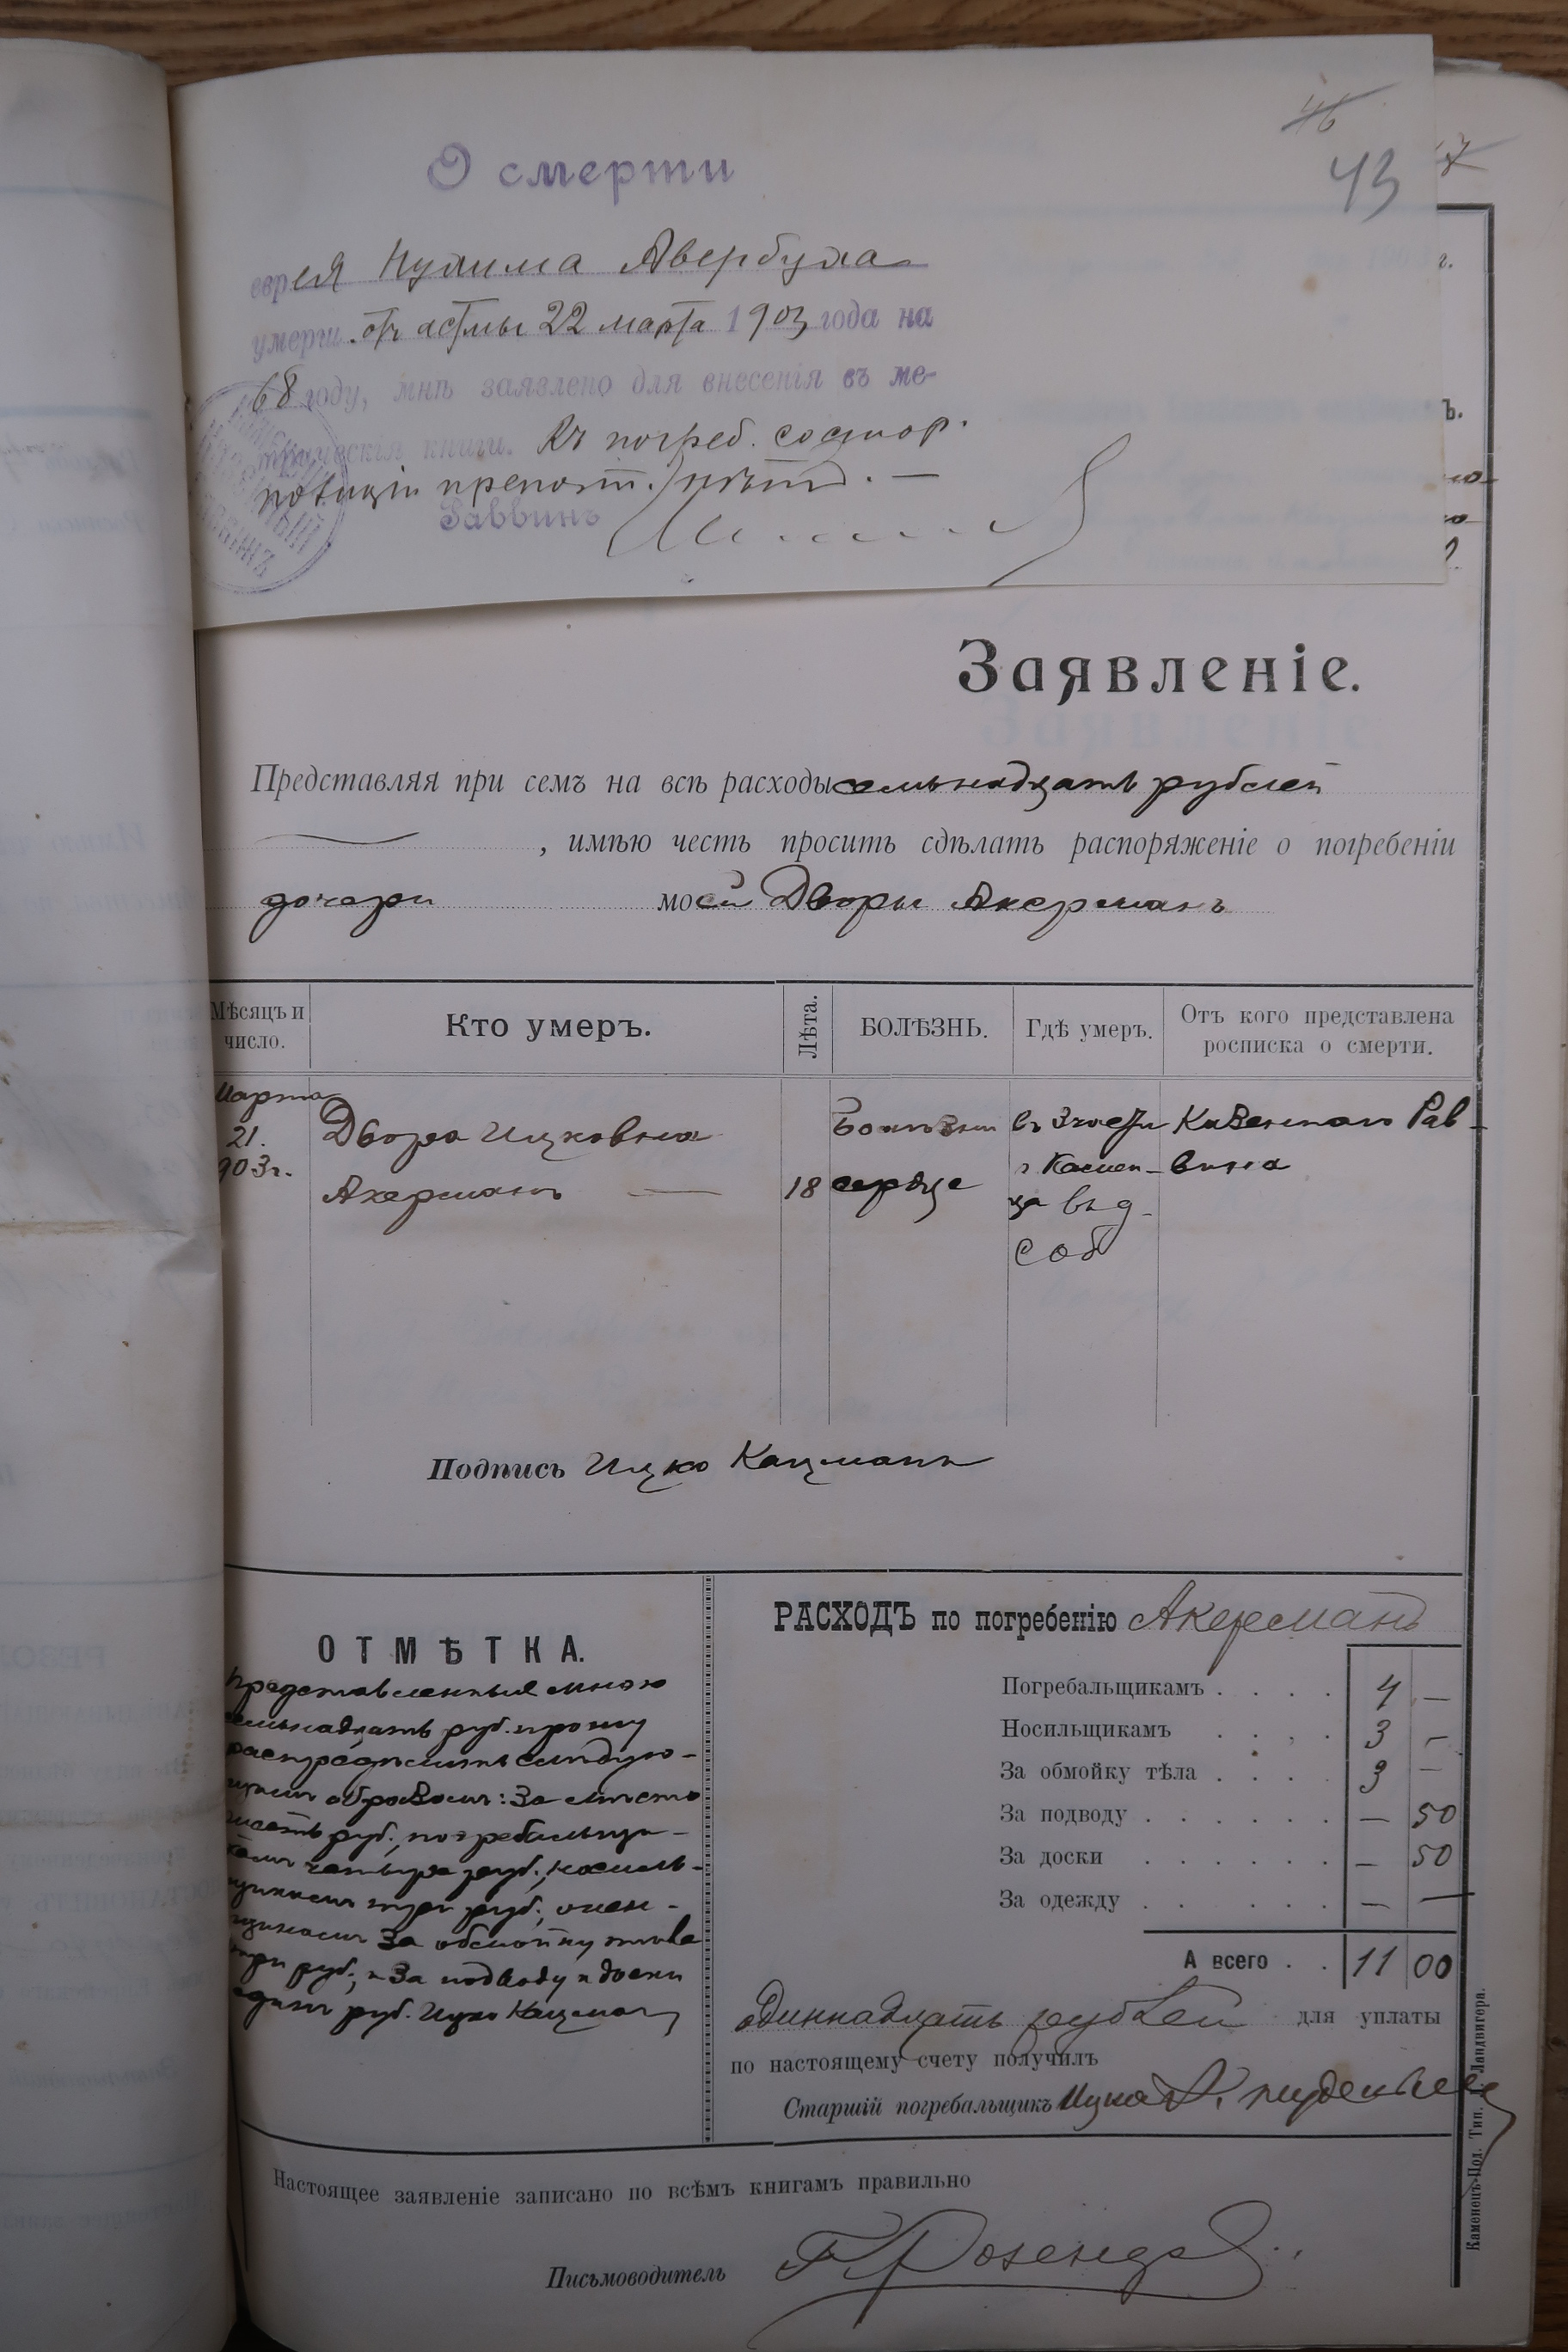 46
43
О смерти
еврея Нухима Авербуха
умерш. отъ астмы 22 марта 1903 года на
68 году, мнѣ заявлено для внесенія въ ме-
трическія книги. Къ погреб. со стор.
полиціи препятст. нѣтъ. —
Раввинъ
Заявленіе.
Представляя при семъ на всѣ расходы семьнадцать рублей
, имѣю честь просить сдѣлать распоряженіе о погребеніи
дочери моей Дворы Акерманъ
Мѣсяцъ и число. Кто умеръ. Лѣта. БОЛѢЗНЬ. Гдѣ умеръ. Отъ кого представлена росписка о смерти.
Марта Двора Ицковна Болѣзни въ 3 части Казеннаго Рав-
21. г. Камен- вина
903 г. Акерманъ — 18 сердце ца въ д.
соб
Подпись Ицко Кацманъ
ОТМѢТКА.
Представленныя мною
семьнадцать руб. прошу
распредѣлить слѣдую-
щимъ образомъ: За мѣсто
шесть руб., погребальщи-
камъ четыре руб., носиль-
щикамъ три руб.,
за обмойку тѣла
три руб., и За подводу и доски
одинъ руб. Ицко Кацманъ
РАСХОДЪ по погребенію Акерманъ
Погребальщикамъ . . . . 4 —
Носильщикамъ . . . 3 —
За обмойку тѣла . . . . 3 —
За подводу . . . . . . — 50
За доски . . . . . . — 50
За одежду . . . . . . — —
А всего . . 11 00
одиннадцать рублей для уплаты
по настоящему счету получилъ
Старшій погребальщикъ Ицко
Настоящее заявленіе записано по всѣмъ книгамъ правильно
Письмоводитель
Каменецъ-Под. Тип. Ландвигера.